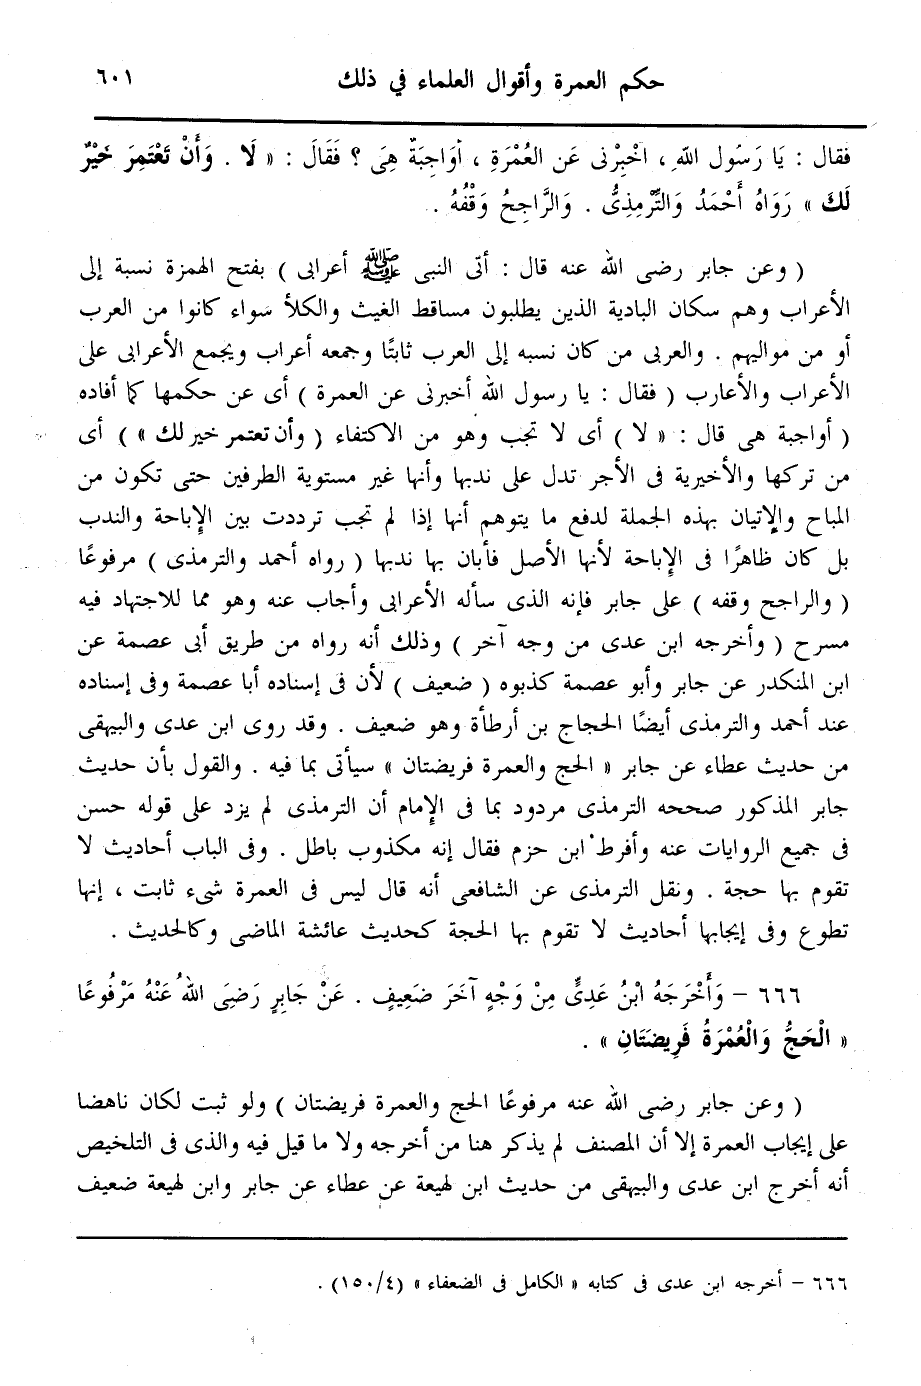 حكم العمرة وأقوال العلماء في ذلك ٦٠١
فقال : يَا رَسُول اللّهِ ، اخْبِرْنى عَن العُمْرَةِ ، أوَاجِبَةٌ هِىَ ؟ فَقَالَ : « لَا . وَأَنْ تَعْتَمِرَ خَيْرٌ
لَكَ » رَوَاهُ أَحْمَدُ وَالتِّرْمِذِىُّ . وَالرَّاجِحُ وَقْفُهُ .
( وعن جابر رضى الله عنه قال : أتى النبى ﷺ أعرابى ) بفتح الهمزة نسبة إلى
الأعراب وهم سكان البادية الذين يطلبون مساقط الغيث والكلأ سواء كانوا من العرب
أو من مواليهم . والعربى من كان نسبه إلى العرب ثابتًا وجمعه أعراب ويجمع الأعرابى على
الأعراب والأعارب ( فقال : يا رسول الله أخبرنى عن العمرة ) أى عن حكمها كما أفاده
( أواجبة هى قال : « لا ) أى لا تجب وهو من الاكتفاء ( وأن تعتمر خير لك » ) أى
من تركها والأخيرية فى الأجر تدل على ندبها وأنها غير مستوية الطرفين حتى تكون من
المباح والإتيان بهذه الجملة لدفع ما يتوهم أنها إذا لم تجب ترددت بين الإباحة والندب
بل كان ظاهرًا فى الإباحة لأنها الأصل فأبان بها ندبها ( رواه أحمد والترمذى ) مرفوعًا
( والراجح وقفه ) على جابر فإنه الذى سأله الأعرابى وأجاب عنه وهو مما للاجتهاد فيه
مسرح ( وأخرجه ابن عدى من وجه آخر ) وذلك أنه رواه من طريق أبى عصمة عن
ابن المنكدر عن جابر وأبو عصمة كذبوه ( ضعيف ) لأن فى إسناده أبا عصمة وفى إسناده
عند أحمد والترمذى أيضًا الحجاج بن أرطأة وهو ضعيف . وقد روى ابن عدى والبيهقى
من حديث عطاء عن جابر « الحج والعمرة فريضتان » سيأتى بما فيه . والقول بأن حديث
جابر المذكور صححه الترمذى مردود بما فى الإمام أن الترمذى لم يزد على قوله حسن
فى جميع الروايات عنه وأفرط ابن حزم فقال إنه مكذوب باطل . وفى الباب أحاديث لا
تقوم بها حجة . ونقل الترمذى عن الشافعى أنه قال ليس فى العمرة شىء ثابت ، إنها
تطوع وفى إيجابها أحاديث لا تقوم بها الحجة كحديث عائشة الماضى وكالحديث .
٦٦٦ – وَأَخْرَجَهُ ابْنُ عَدِىٍّ مِنْ وَجْهٍ آخَرَ ضَعِيفٍ . عَنْ جَابِرٍ رَضِىَ اللّهُ عَنْهُ مَرْفُوعًا
« الْحَجُّ وَالْعُمْرَةُ فَرِيضَتَانِ » .
( وعن جابر رضى الله عنه مرفوعًا الحج والعمرة فريضتان ) ولو ثبت لكان ناهضا
على إيجاب العمرة إلا أن المصنف لم يذكر هنا من أخرجه ولا ما قيل فيه والذى فى التلخيص
أنه أخرج ابن عدى والبيهقى من حديث ابن لهيعة عن عطاء عن جابر وابن لهيعة ضعيف
٦٦٦ – أخرجه ابن عدى فى كتابه « الكامل فى الضعفاء » (١٥٠/٤) .